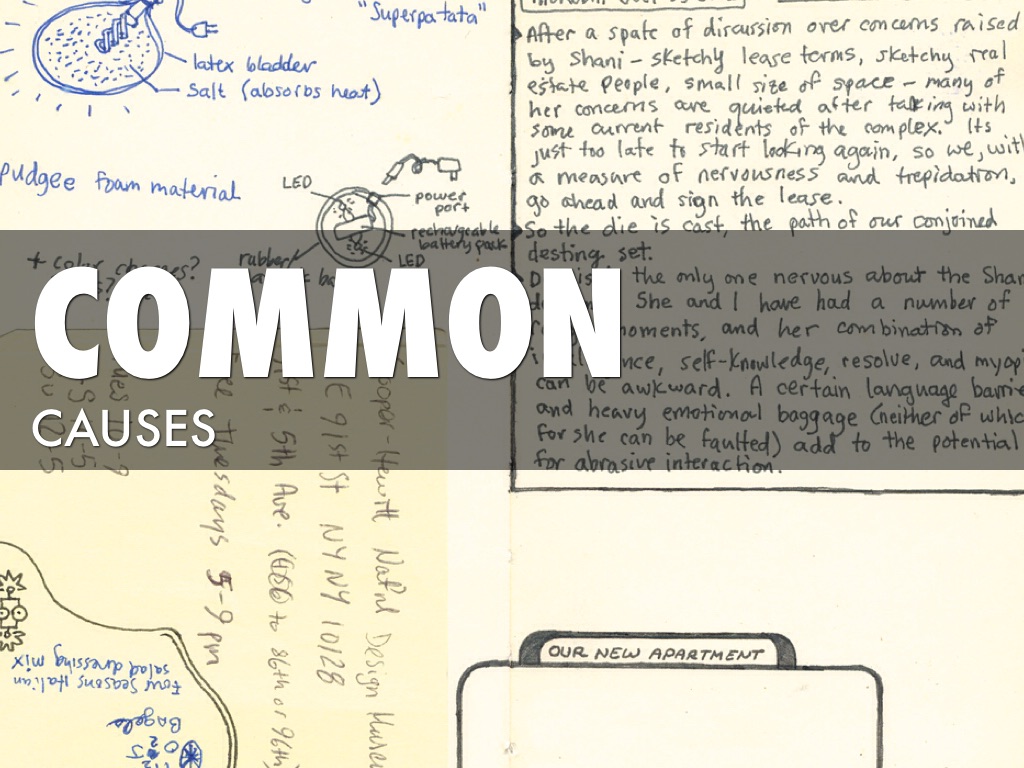 "Superpatata"
latex bladder
Salt (absorbs heat)
pudgee foam material
LED
power
port
rechargeable
battery pack
LED
rubber
+ color changes?
After a spate of discussion over concerns raised
by Shani – sketchy lease terms, sketchy real
estate people, small size of space – many of
her concerns are quieted after talking with
some current residents of the complex. Its
just too late to start looking again, so we, with
a measure of nervousness and trepidation,
go ahead and sign the lease.
So the die is cast, the path of our conjoined
destiny set.
the only one nervous about the Shan
She and I have had a number of
moments, and her combination of
self-knowledge, resolve, and myopi
can be awkward. A certain language barrie
and heavy emotional baggage (neither of which
for she can be faulted) add to the potential
for abrasive interaction.
COMMON
CAUSES
Cooper-Hewitt Nat'nl Design Museu
E 91st St NY NY 10128
91st & 5th Ave. (4,5,6) to 86th or 96th
Free Tuesdays 5-9 pm
Four Seasons Italian
salad dressing mix
Bagels
OUR NEW APARTMENT